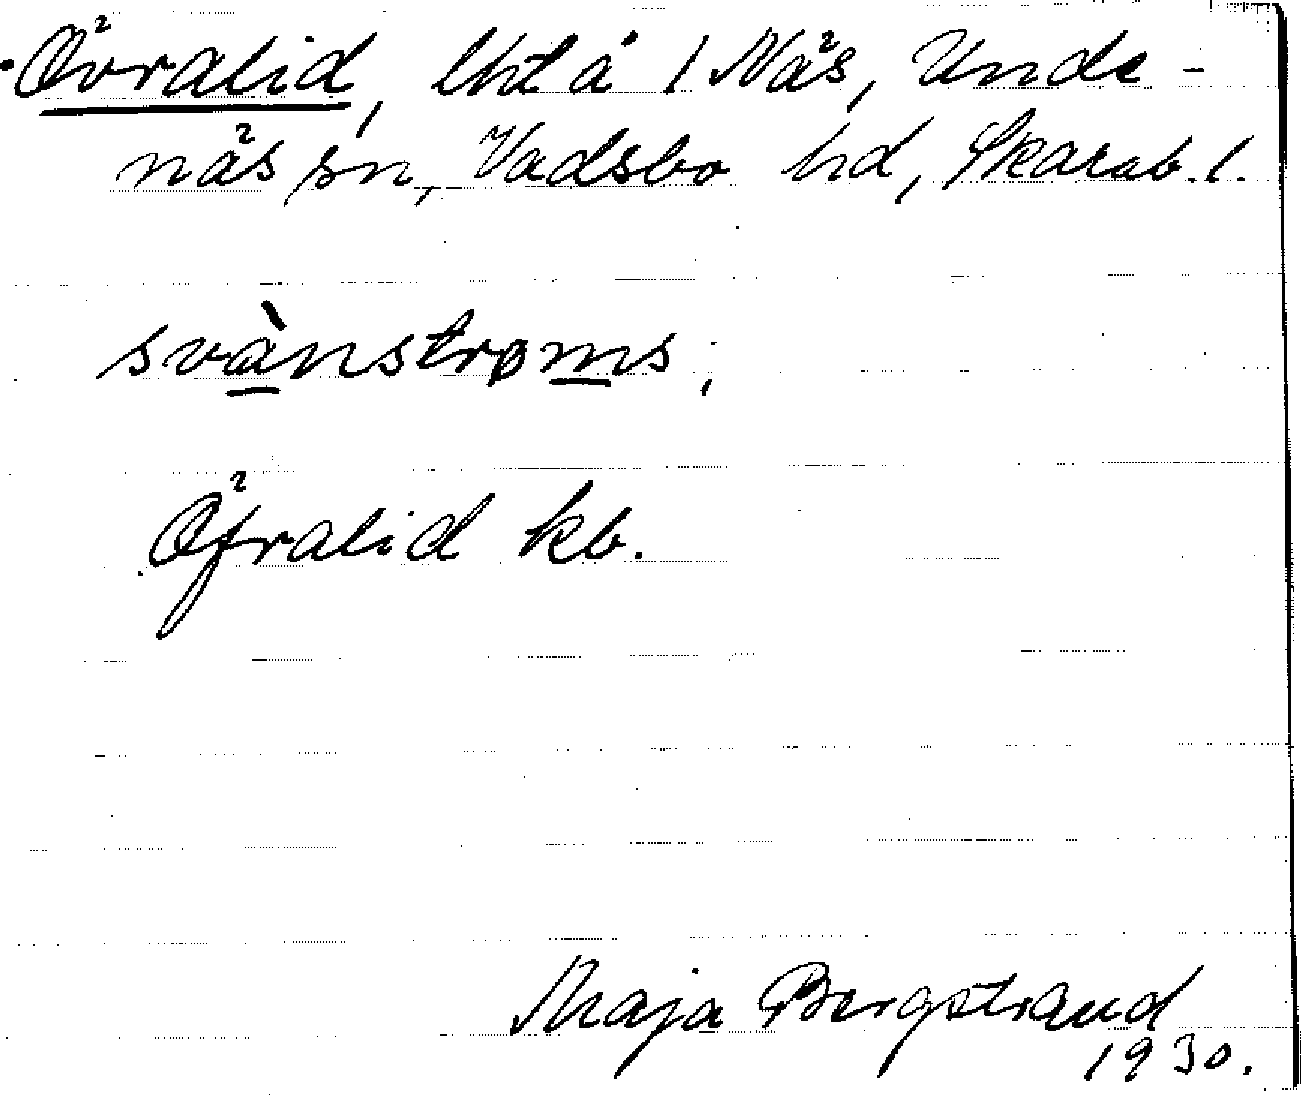 Övralid, lht å 1 Näs, Unde-
näs sn, Vadsbo hd, Skarab. l.
svànstrøms;
Öfralid kb.
Maja Bergstrand
1930.